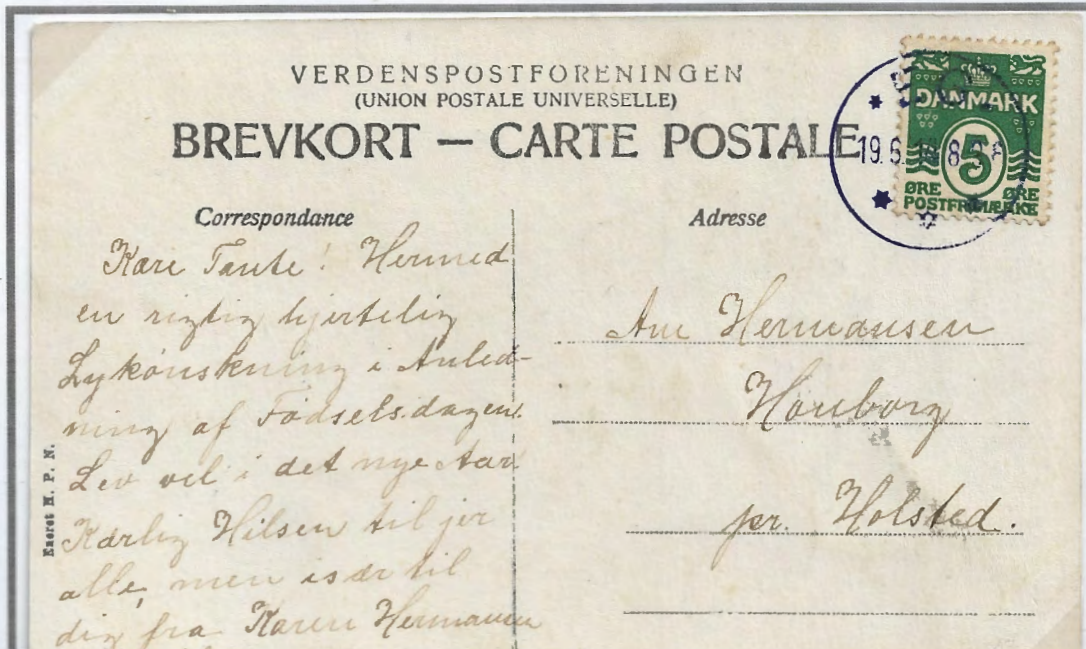 VERDENSPOSTFORENINGEN
(UNION POSTALE UNIVERSELLE)
BREVKORT — CARTE POSTALE
DANMARK
5
ØRE ØRE
POSTFRIMÆRKE
19.6.
Correspondance
Kære Tante! Hermed
en rigtig hjertelig
Lykønskning i Anled-
ning af Fødselsdagen!
Lev vel i det nye Aar
Kærlig Hilsen til jer
alle, men især til
dig fra Karen Hermansen
Eneret H. P. N.
Adresse
Ane Hermansen
Houborg
pr. Holsted.